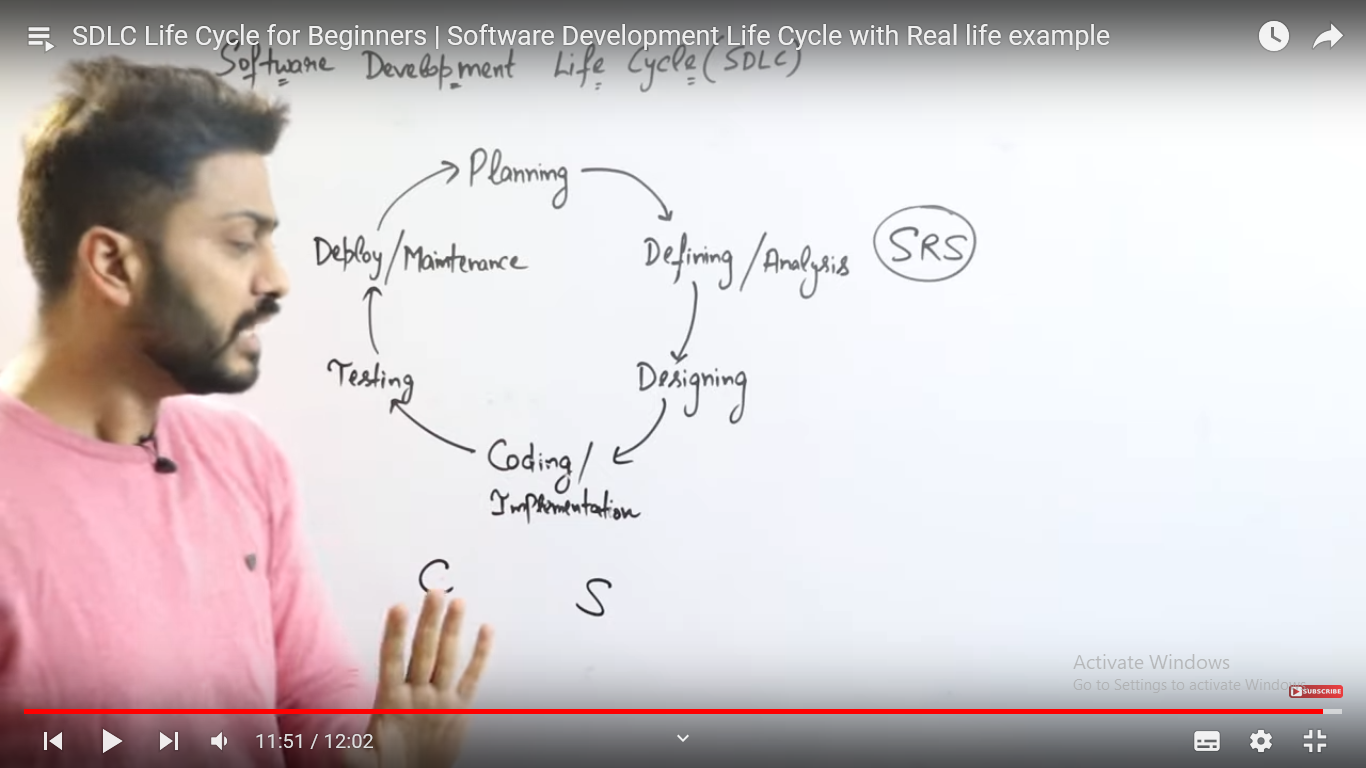 SDLC Life Cycle for Beginners | Software Development Life Cycle with Real life example
Software Development Life Cycle (SDLC)
Planning
Deploy/Maintenance
Defining/Analysis
SRS
Testing
Designing
Coding/
Implementation
C
S
Activate Windows
Go to Settings to activate Windows.
SUBSCRIBE
11:51 / 12:02